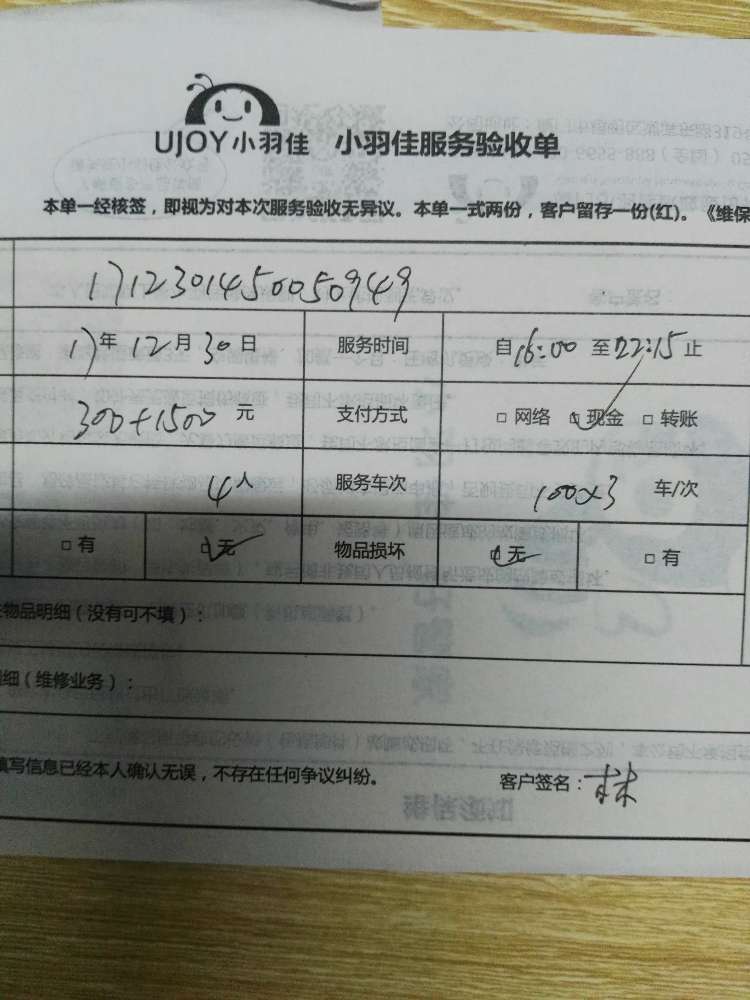 UJOY小羽佳 小羽佳服务验收单
本单一经核签，即视为对本次服务验收无异议。本单一式两份，客户留存一份(红)。《维保
1712301450050949
17年12月30日 服务时间 自16:00至22:15止
300+1500元 支付方式 □网络 □现金 □转账
4人 服务车次 100×3 车/次
□有 □无 物品损坏 □无 □有
物品明细（没有可不填）：
细（维修业务）：
填写信息已经本人确认无误，不存在任何争议纠纷。 客户签名：林